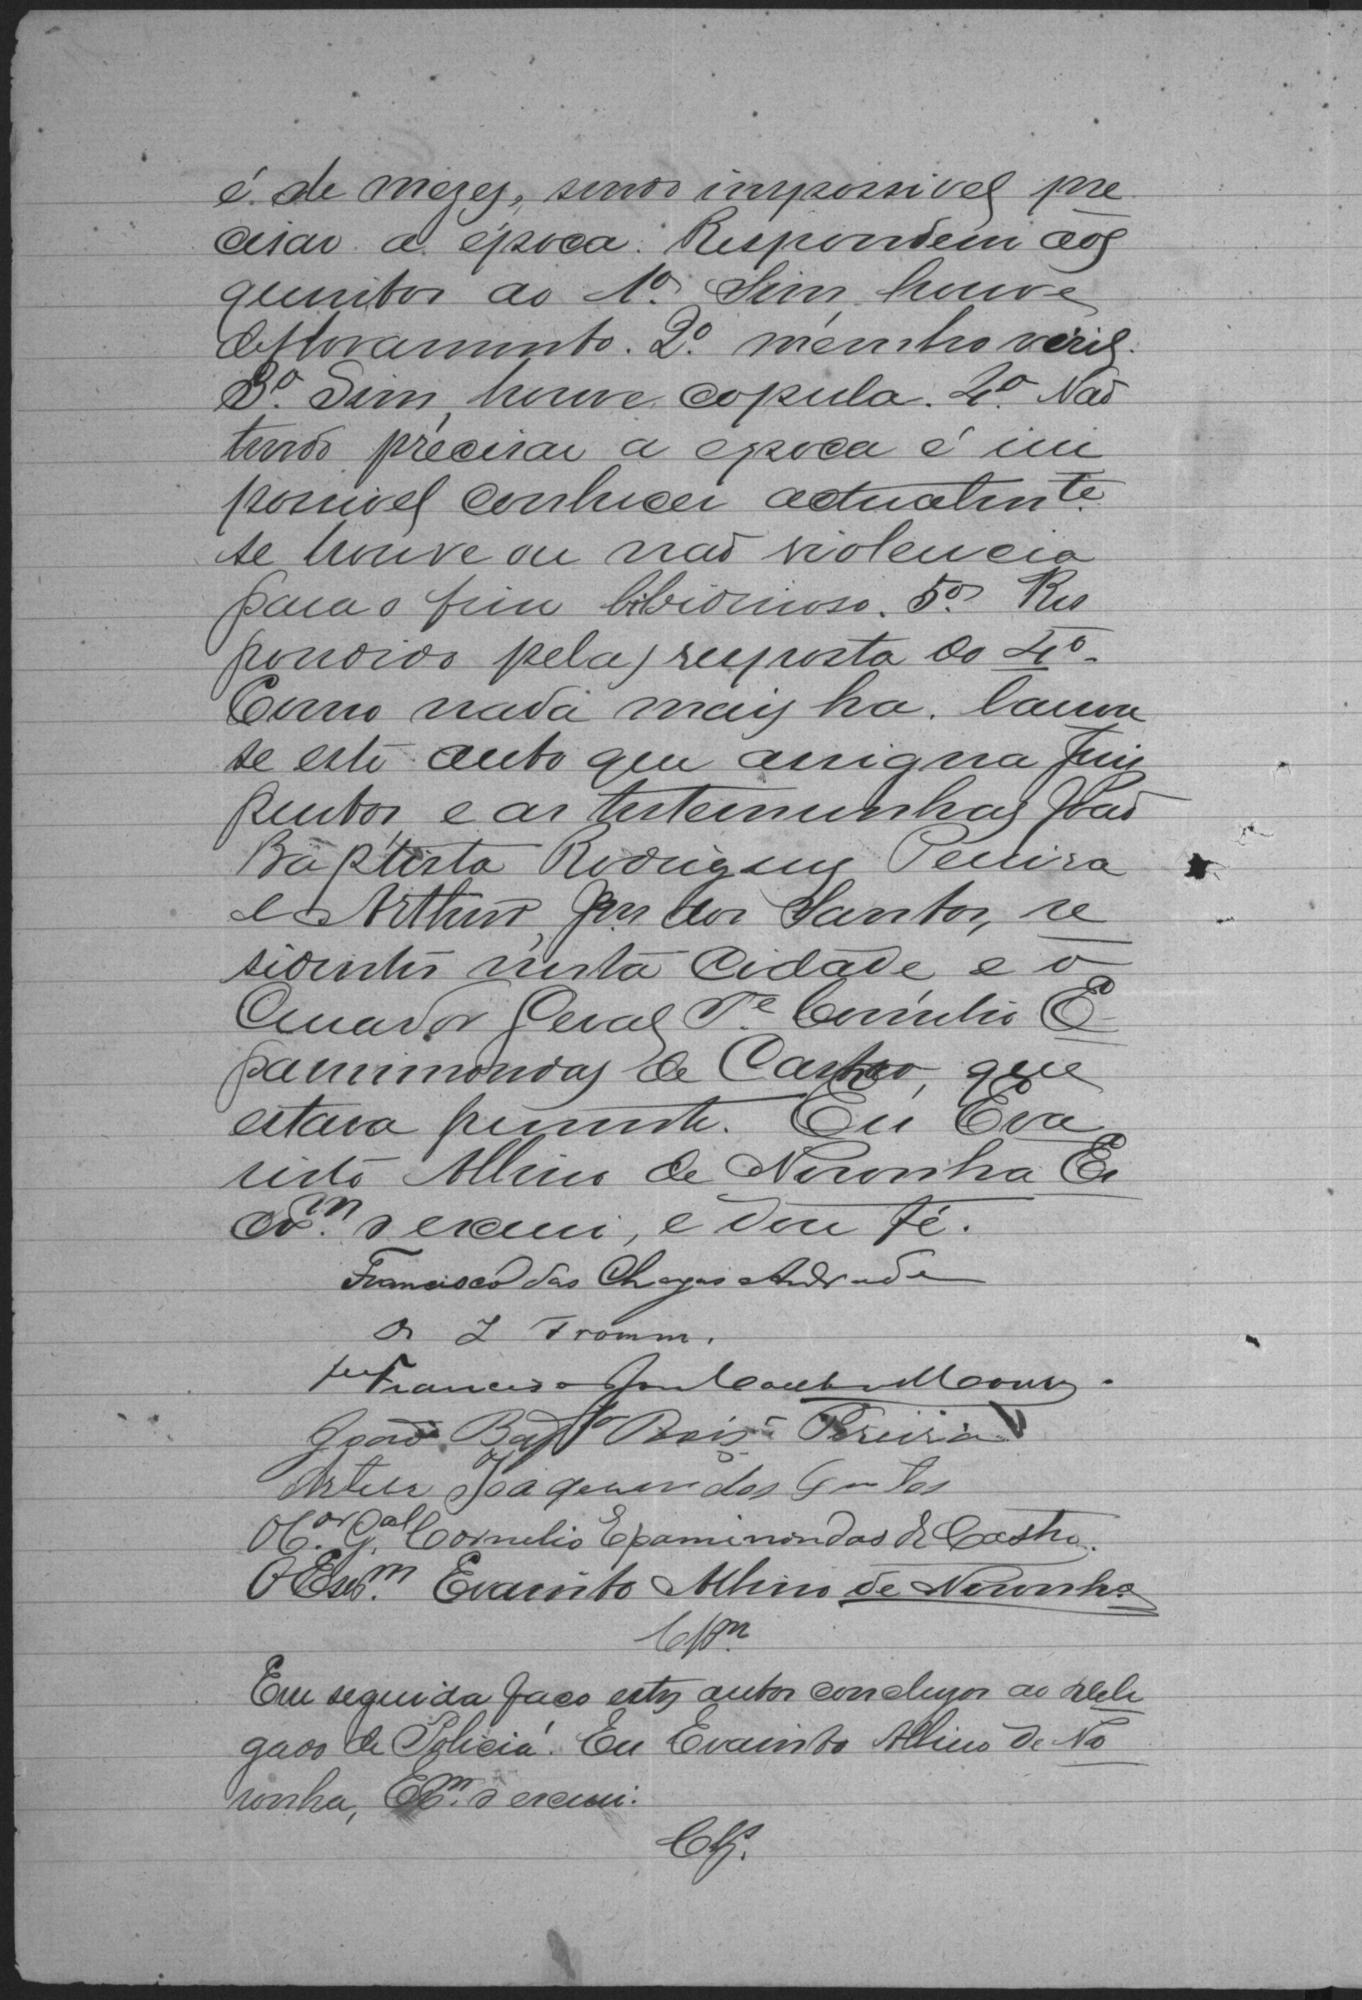 é de mezes, sendo impossivel pre
cisar a época. Respondem aos
quesitos ao 1º. Sim, houve
defloramento. 2º. membro viril.
3º. Sim, houve copula. 4º. Não
tendo precisar a epoca é im
possivel conhecer actualmte.
se houve ou não violencia
para o fim libidinoso. 5º. Res
pondido pela resposta do 4º.
Como nada mais ha. lavrou
se este auto que assigna Juiz
peritos e as testemunhas João
Baptista Rodrigues Pereira
e Arthur, Jm dos Santos, re
sidentes nesta Cidade, e o
Curador Geral Te. Cornelio E
paminondas de Castro, que
estava presente. Eu Eva
risto Albino de Noronha Es
cvm. o escrevi, e dou fé.
Francisco das Chagas Andrade
Dr L Fromm.
Francisco José Coelho Moura.
João Bapta Roiz Pereira
Artur Joaquim dos Santos
O C.or G.al Cornelio Epaminondas de Castro.
O Escrm. Evaristo Albino de Noronha
Em seguida faço estes autos conclusos ao dele
gado de Policia. Eu Evaristo Albino de No
ronha, Escm. o escrevi.
Cls.